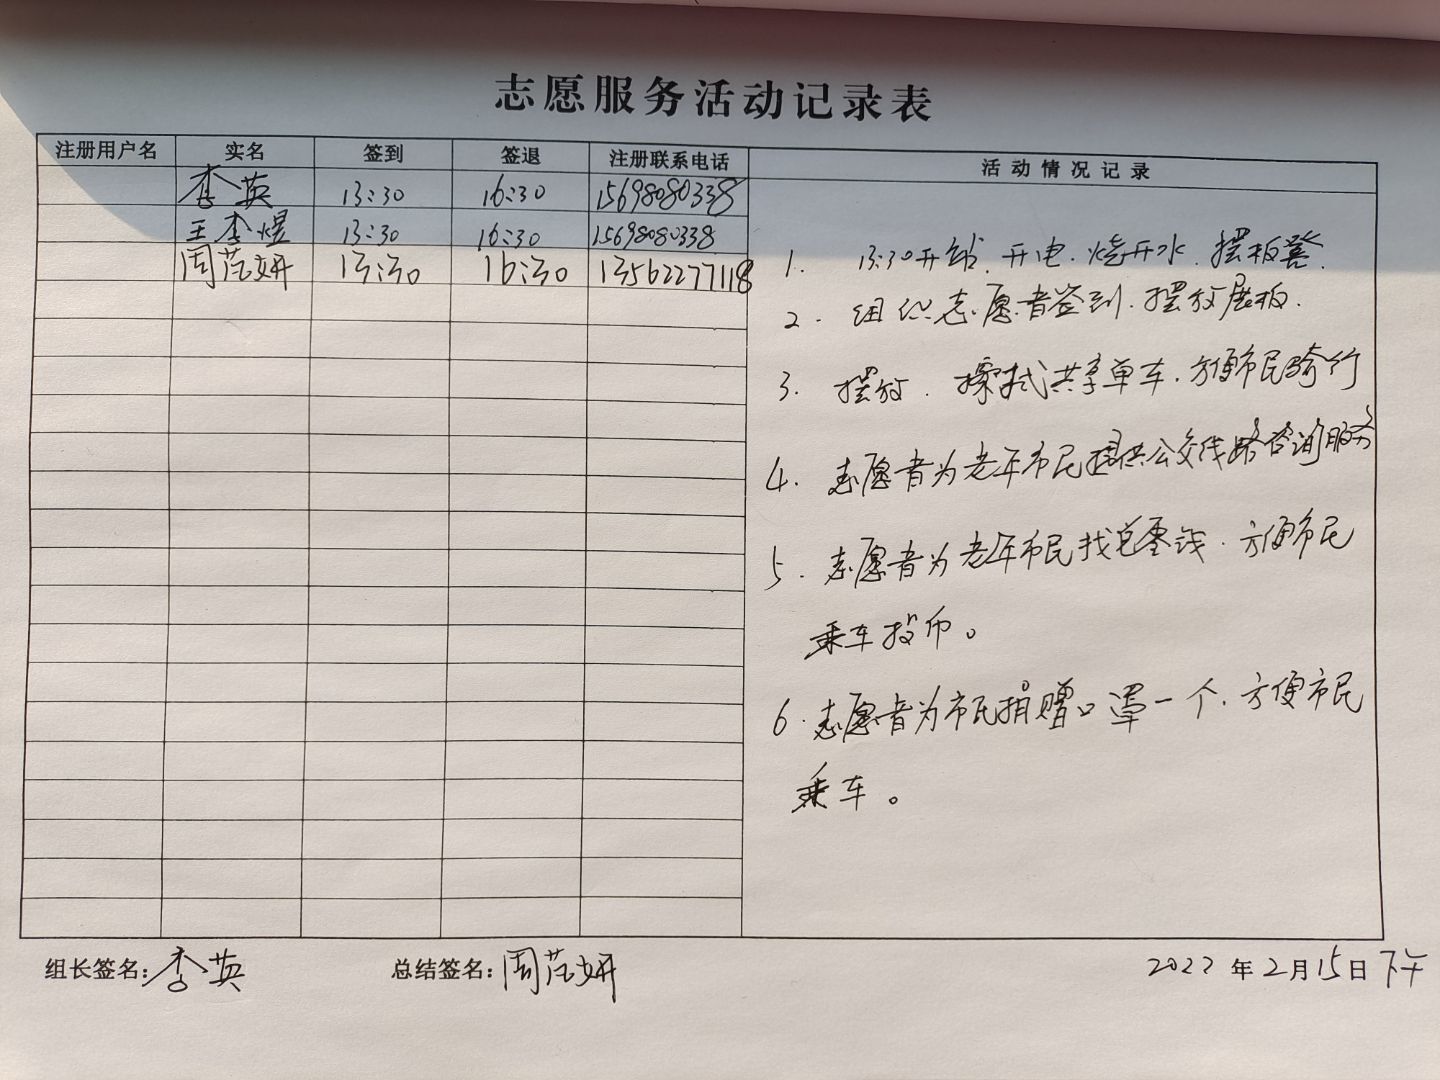 志愿服务活动记录表
注册用户名 实名 签到 签退 注册联系电话 活动情况记录
李英 13:30 16:30 15698080338
王李煜 13:30 16:30 15698080338
周范妍 13:30 16:30 13562277118
1. 13:30开站、开电、烧开水、摆板凳、
2. 组织志愿者签到、摆放展板.
3. 摆放、擦拭共享单车、方便市民骑行
4. 志愿者为老年市民提供公交线路咨询服务
5. 志愿者为老年市民找兑零钱、方便市民
乘车投币。
6. 志愿者为市民捐赠口罩一个、方便市民
乘车。
组长签名：李英 总结签名：周范妍 2022年2月15日下午